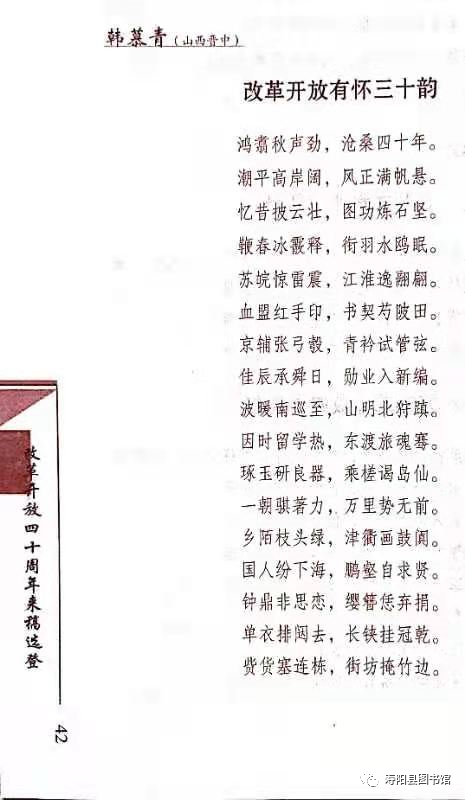 韩慕青（山西晋中）
改革开放有怀三十韵
鸿翥秋声劲，沧桑四十年。
潮平高岸阔，风正满帆悬。
忆昔披云壮，图功炼石坚。
鞭春冰霰释，衔羽水鸥眠。
苏皖惊雷震，江淮逸翮翩。
血盟红手印，书契芍陂田。
京辅张弓彀，青衿试管弦。
佳辰承舜日，勋业入新编。
波暖南巡至，山明北狩蹎。
因时留学热，东渡旅魂骞。
琢玉研良器，乘槎谒岛仙。
一朝骐著力，万里势无前。
乡陌枝头绿，津衢画鼓阗。
国人纷下海，鹏壑自求贤。
钟鼎非思恋，缨簪恁弃捐。
单衣排闼去，长铗挂冠乾。
赀货塞连栋，街坊掩竹边。
改革开放四十周年来稿选登
42
寿阳县图书馆